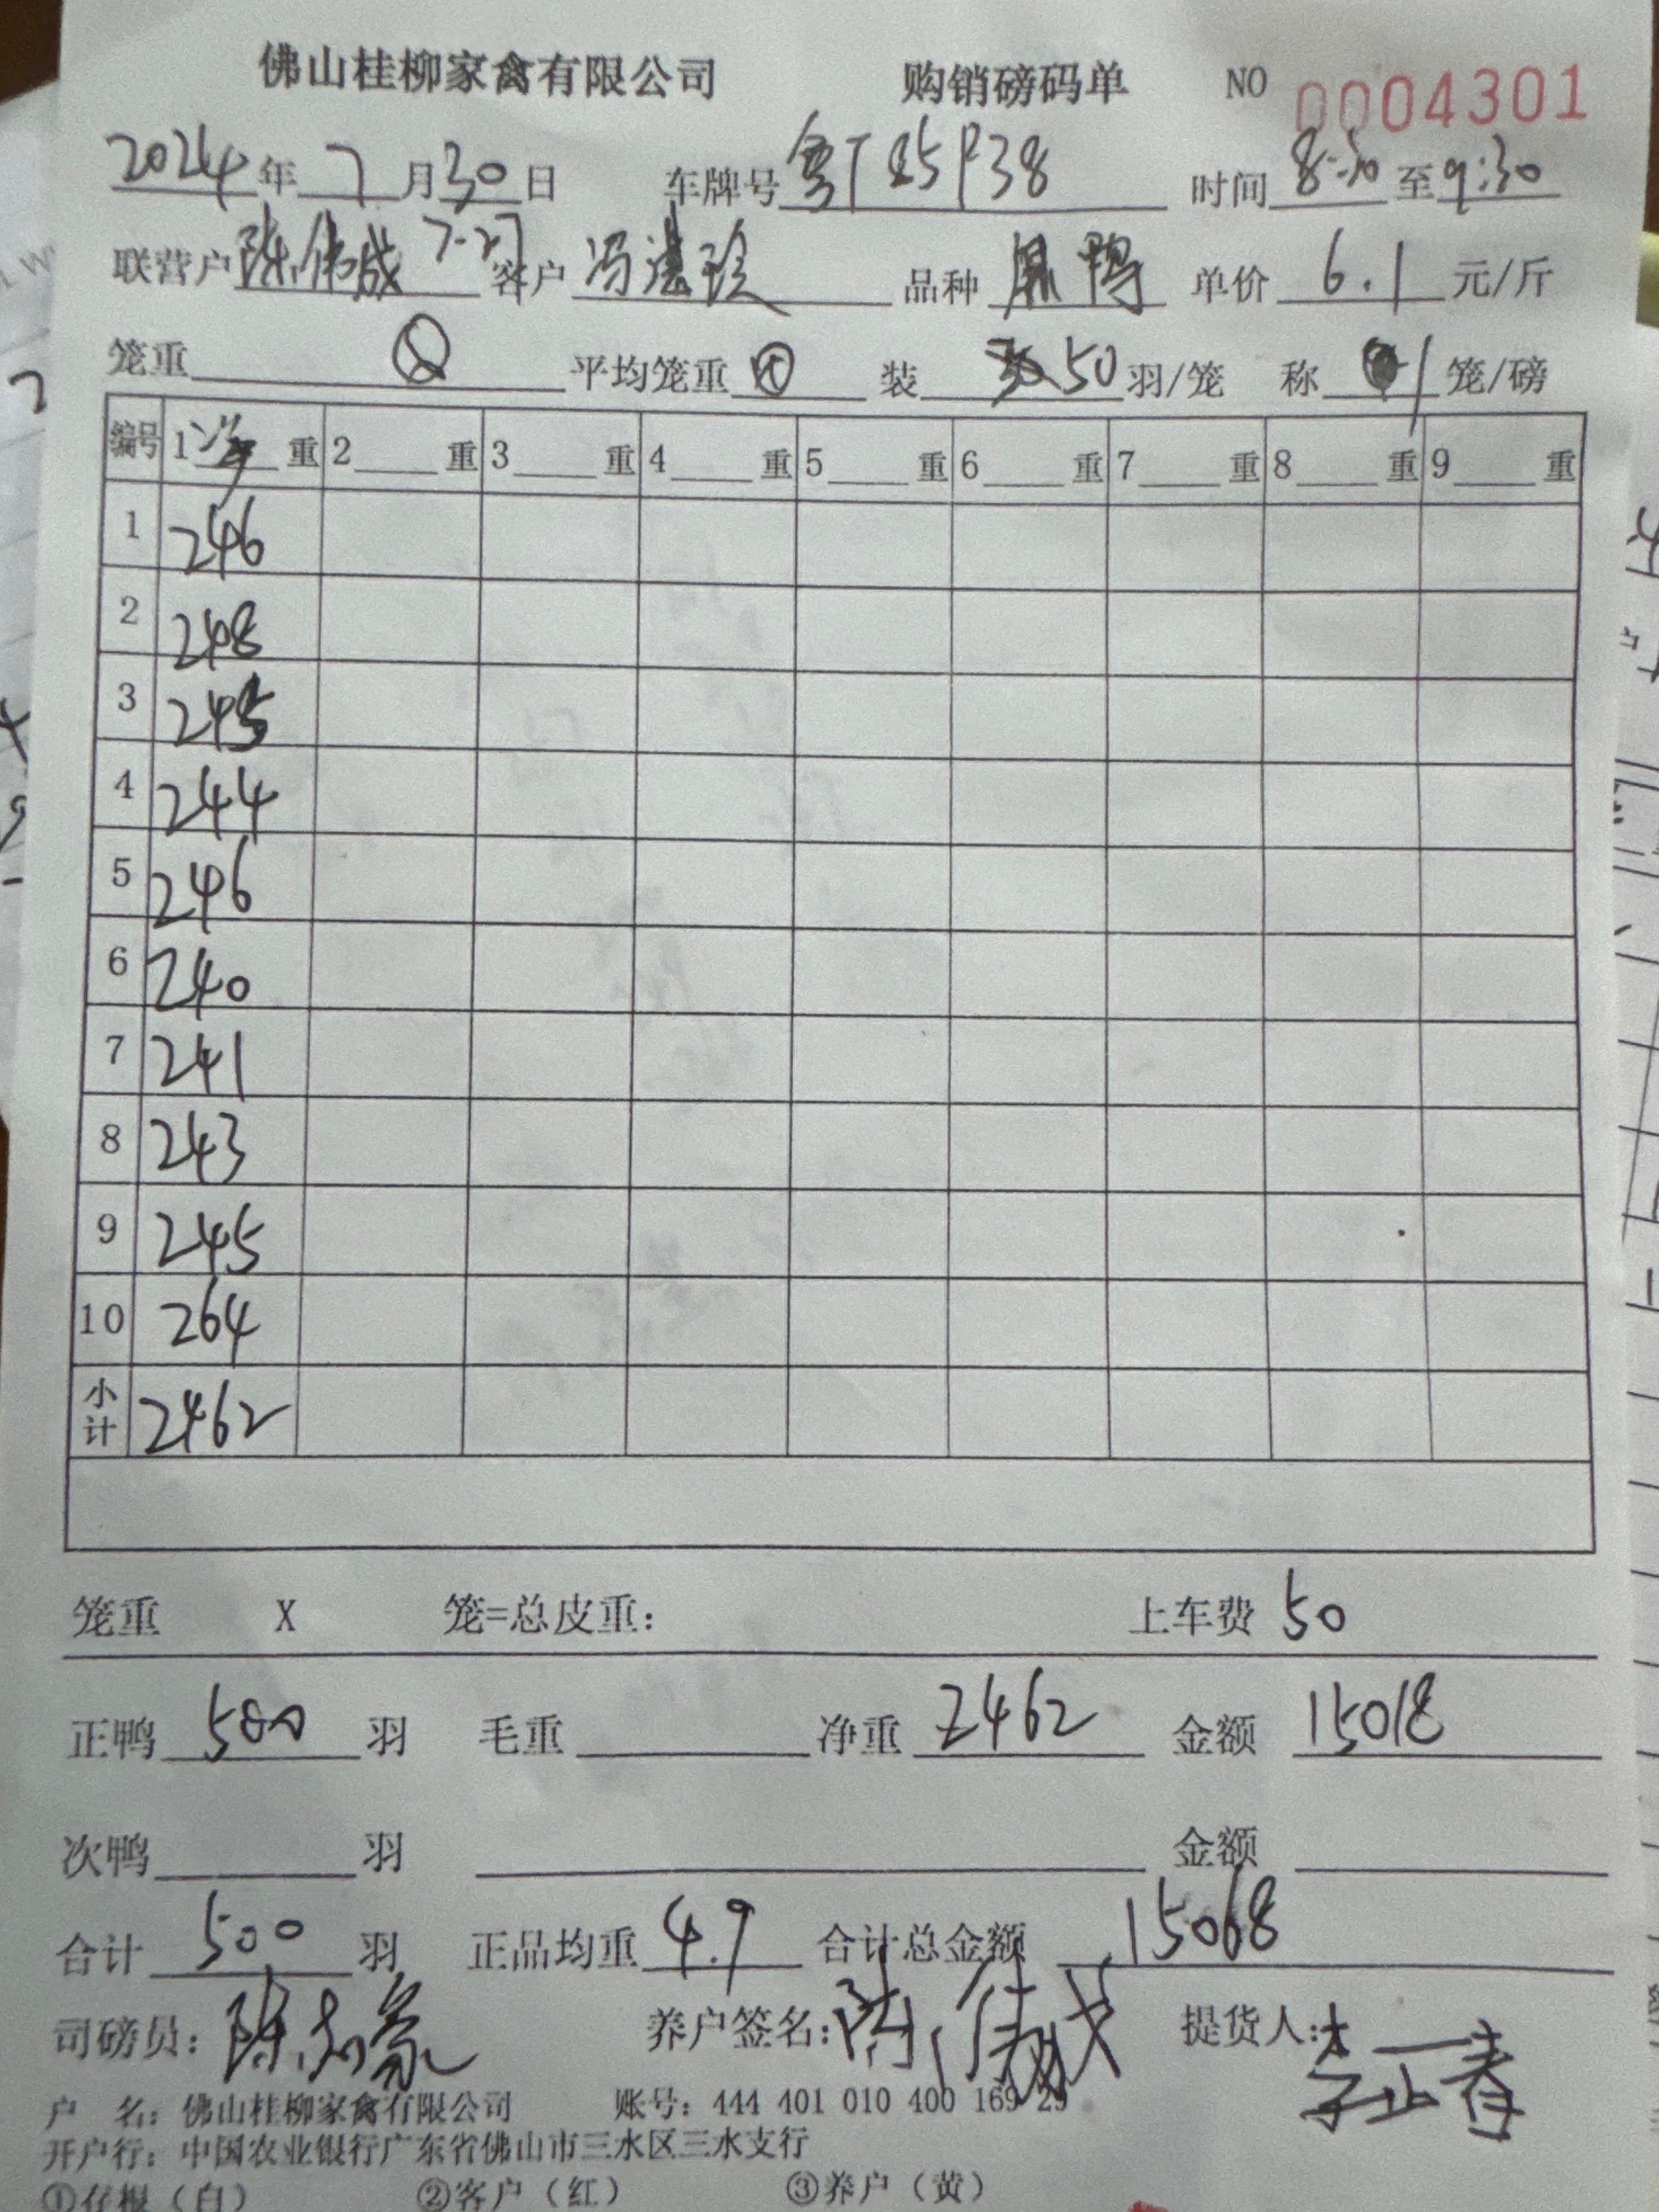 佛山桂柳家禽有限公司 购销磅码单 NO 0004301
2024年7月30日 车牌号粤T85P38 时间8:30至9:30
联营户陈伟成 7-27 客户冯 品种麻鸭 单价6.1元/斤
笼重 平均笼重 装50羽/笼 称1笼/磅
编号 1 重 2 重 3 重 4 重 5 重 6 重 7 重 8 重 9 重
1 246
2 248
3 245
4 244
5 246
6 240
7 241
8 243
9 245
10 264
小计 2462
笼重 X 笼=总皮重: 上车费 50
正鸭500羽 毛重 净重2462 金额15018
次鸭 羽 金额
合计500羽 正品均重4.9 合计总金额15068
司磅员:陈志豪 养户签名:陈伟成 提货人:李正春
户 名:佛山桂柳家禽有限公司 账号:444 401 010 400 169 29
开户行:中国农业银行广东省佛山市三水区三水支行
①存根(白) ②客户(红) ③养户(黄)